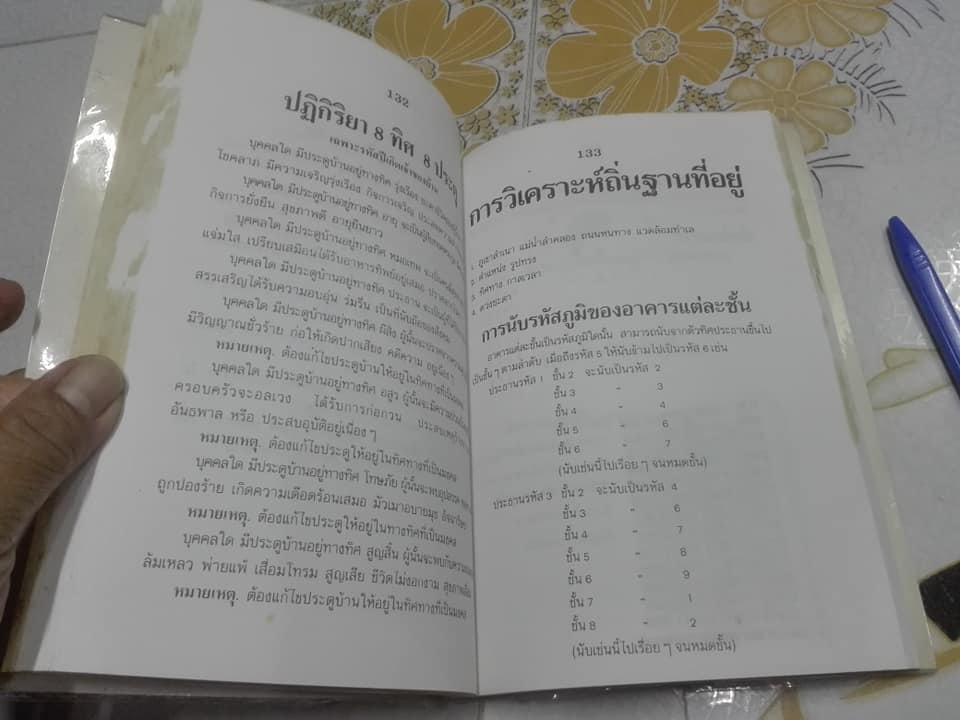 132
ปฏิกิริยา 8 ทิศ 8 ประตู
เฉพาะรหัสปีเกิดเจ้าของบ้าน
บุคคลใด มีประตูบ้านอยู่ทางทิศ รุ่งเรือง
โชคลาภ มีความเจริญรุ่งเรือง กิจการเจริญ
บุคคลใด มีประตูบ้านอยู่ทางทิศ อายุ จะเป็นผู้
กิจการยั่งยืน สุขภาพดี อายุยืนยาว
บุคคลใด มีประตูบ้านอยู่ทางทิศ หมอเทพ จะเป็น
แจ่มใส เปรียบเสมือนได้รับอาหารทิพย์อยู่เสมอ
บุคคลใด มีประตูบ้านอยู่ทางทิศ ประธาน จะเป็นผู้
สรรเสริญได้รับความอบอุ่น ร่มรื่น เป็นที่นับถือของสังคม
บุคคลใด มีประตูบ้านอยู่ทางทิศ ผีสิง ผู้นั้นจะ
มีวิญญาณชั่วร้าย ก่อให้เกิดปากเสียง คดีความ อยู่เนื่อง ๆ
หมายเหตุ. ต้องแก้ไขประตูบ้านให้อยู่ในทิศทางที่เป็นมงคล
บุคคลใด มีประตูบ้านอยู่ทางทิศ อสูร ผู้นั้นจะมีความ
ครอบครัวจะอลเวง ได้รับการก่อกวน ประสบเหตุ
อันธพาล หรือ ประสบอุบัติอยู่เนื่อง ๆ
หมายเหตุ. ต้องแก้ไขประตูให้อยู่ในทิศทางที่เป็นมงคล
บุคคลใด มีประตูบ้านอยู่ทางทิศ โทษภัย ผู้นั้นจะพบอุปสรรค
ถูกปองร้าย เกิดความเดือดร้อนเสมอ มัวเมาอบายมุข
หมายเหตุ. ต้องแก้ไขประตูให้อยู่ในทางทิศที่เป็นมงคล
บุคคลใด มีประตูบ้านอยู่ทางทิศ สูญสิ้น ผู้นั้นจะพบกับความ
ล้มเหลว พ่ายแพ้ เสื่อมโทรม สูญเสีย ชีวิตไม่งอกงาม
หมายเหตุ. ต้องแก้ไขประตูบ้านให้อยู่ในทิศทางที่เป็นมงคล
133
การวิเคราะห์ถิ่นฐานที่อยู่
1. ภูเขาลำเนา แม่น้ำลำคลอง ถนนหนทาง แวดล้อมทำเล
2. ตำแหน่ง รูปทรง
3. ทิศทาง กาลเวลา
4. ดวงชะตา
การนับรหัสภูมิของอาคารแต่ละชั้น
อาคารแต่ละชั้นเป็นรหัสภูมิใดนั้น สามารถนับจากตัวทิศประธานขึ้นไป
เป็นชั้น ๆ ตามลำดับ เมื่อถึงรหัส 5 ให้นับข้ามไปเป็นรหัส 6 เช่น
ประธานรหัส 1 ชั้น 2 จะนับเป็นรหัส 2
ชั้น 3 " 3
ชั้น 4 " 4
ชั้น 5 " 6
ชั้น 6 " 7
(นับเช่นนี้ไปเรื่อย ๆ จนหมดชั้น)
ประธานรหัส 3 ชั้น 2 จะนับเป็นรหัส 4
ชั้น 3 " 6
ชั้น 4 " 7
ชั้น 5 " 8
ชั้น 6 " 9
ชั้น 7 " 1
ชั้น 8 " 2
(นับเช่นนี้ไปเรื่อย ๆ จนหมดชั้น)